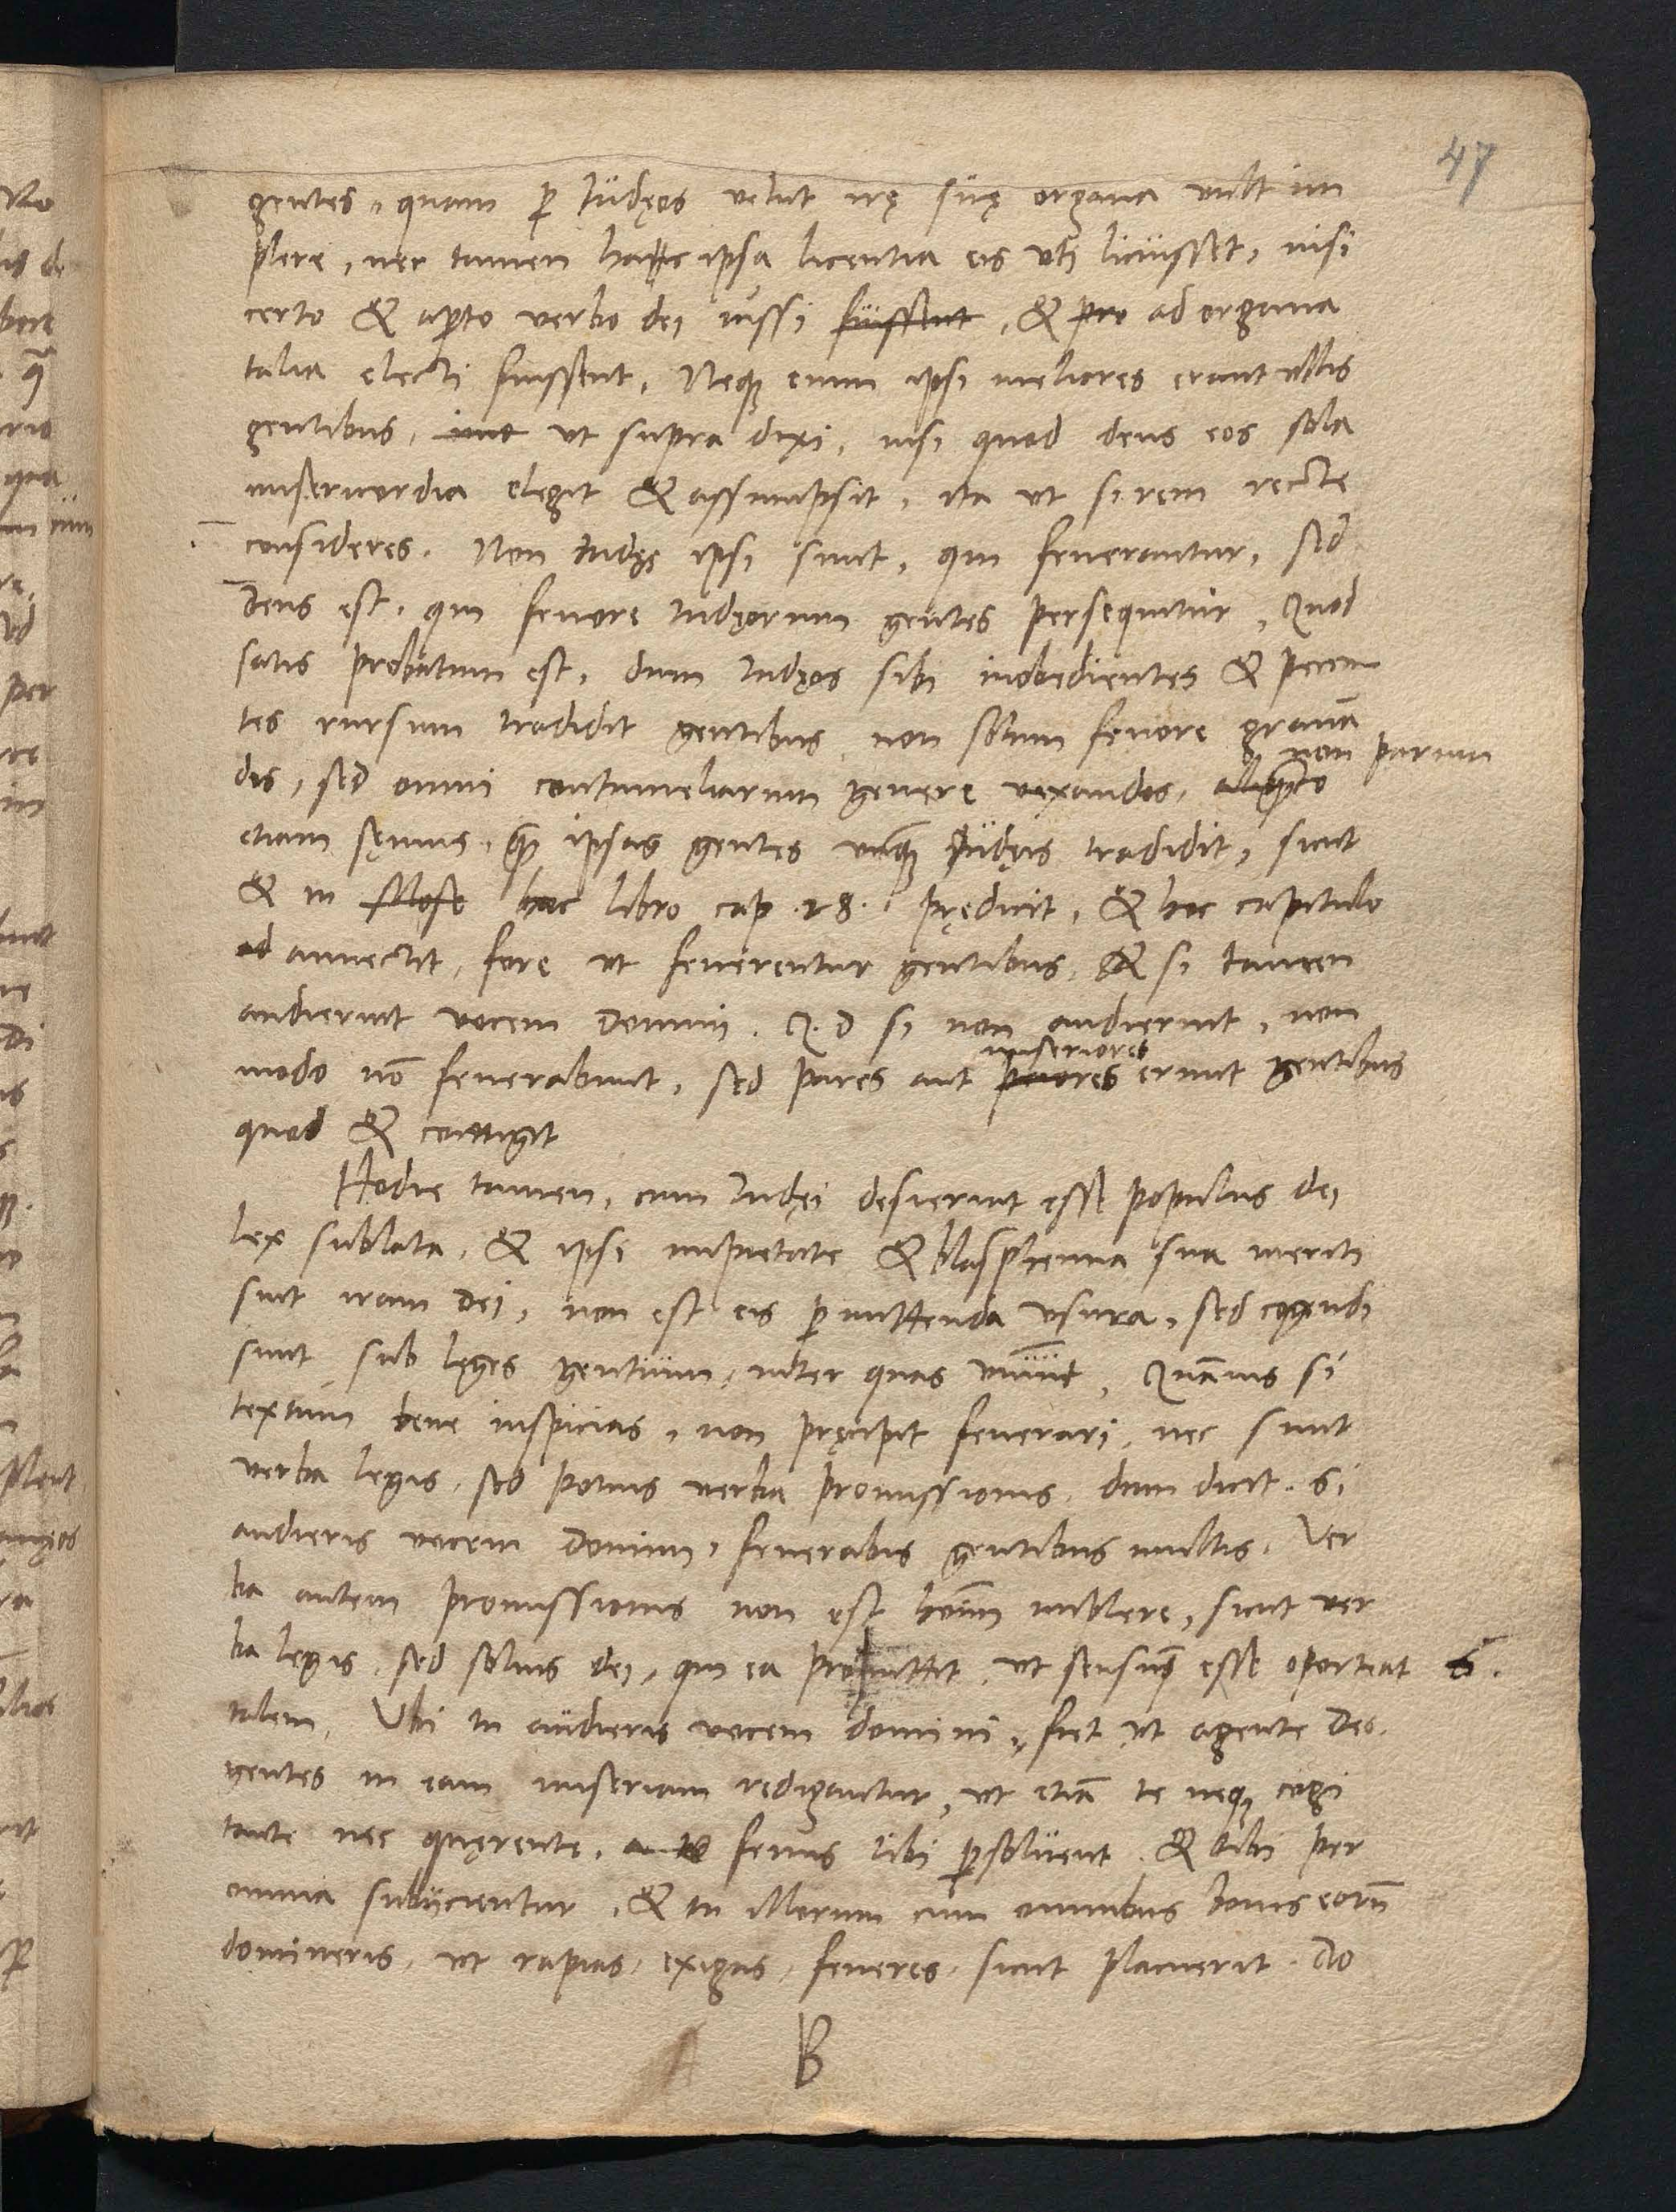 47
gentes, quam ꝑ Iudęos velut irę suę organa vult im
plere, nec tamen hac ipsa licentia eis uti licuisset, nisi
certo & aperto verbo dei iussi fuissent, & pro ad organa
talia electi fuissent. Neqꝫ enim ipsi meliores erant ullis
gentibus, imo ut supra dixi, nisi quod deus eos sola
misericordia elegit & assumpsit, ita ut si rem recte
consideres. Non Iudęi ipsi sunt, qui fenerantur, sed
Deus est, qui fenore Iudęorum gentes persequitur, Quod
satis probatum est, dum Iudęos sibi inobedientes & peccan
tes rursum tradidit gentibus non solum fenore grauā
dis, sed omni contumeliarum genere vexandos, aliqto non parum
etiam sęuius, qͣꝫ ipsas gentes unqͣꝫ Iudęis tradidit, sicut
& in Mose hoc libro cap. 28. prędicit, & hoc capitulo
ad annectit, fore ut fenerentur gentibus, & si tamen
audierint vocem Domini. Q. D si non audierint, non
modo nō fenerabunt, sed pares aut peiores miseriores erunt gentibus
quod & contigit
Hodie tamen, cum Iudęi desierint esse populus dei
lex sublata, & ipsi impietate & blasphemia sua meriti
sint iram Dei, non est eis ꝑmittenda usura, sed cogendi
sunt sub leges gentium, inter quas uiuūt, Quāuis si
textum bene inspicias, non pręcipit fenerari, nec sunt
verba legis, sed potius verba promissionis, dum dicit. Si
audieris vocem Domini, fenerabis gentibus multis. Ver
ba autem promissionis non est hoīm implere, sicut ver
ba legis, sed solius dei, qui ea promittit, ut sensus esse oporteat
talem, Ubi tu audieris vocem domini, fiet ut agente Deo
gentes in eam miseriam redigantur, ut etiā te neqꝫ cogi
tante nec quęrente, fenus tibi ꝑsoluent, & tibi per
omnia subijcientur, & tu illorum cum omnibus bonis eorū
domineris, ut rapias, exigas, feneres, sicut placuerit. Do
B